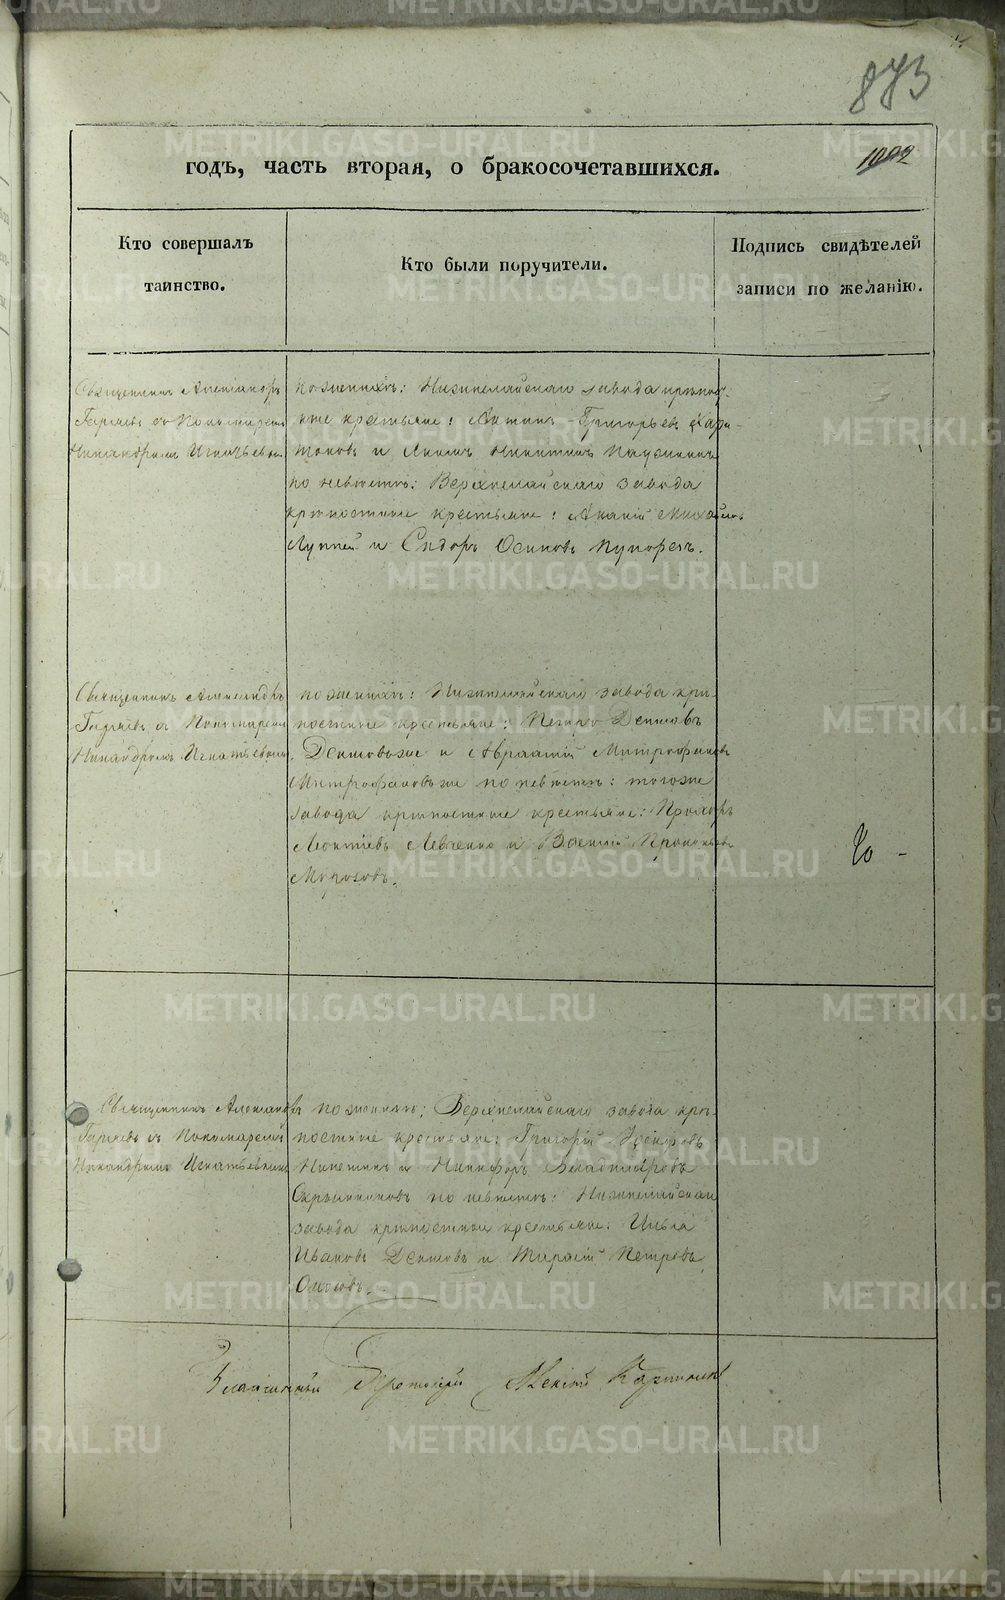 873
годъ, часть вторая, о бракосочетавшихся.
1092
Кто совершалъ
таинство.
Кто были поручители.
Подпись свидѣтелей
записи по желанію.
Священникъ Александръ
Гаряевъ съ Пономаремъ
Никандромъ Игнатьевымъ
по женихѣ: Нижнелайскаго завода крѣпост-
ные крестьяне: Антипъ Григорьевъ Хари-
тоновъ и Никитинъ
по невѣстѣ: Верхнелайскаго завода
крѣпостные крестьяне: Ананій Михайловъ
и Сидоръ Осиповъ
Священникъ Александръ
Гаряевъ съ Пономаремъ
Никандромъ Игнатьевымъ
по женихѣ: Нижнелайскаго завода крѣ-
постные крестьяне: Петръ Денисовъ
и Авраамій Митрофановъ
по невѣстѣ: тогоже
завода крѣпостные крестьяне: Прохоръ
Леонтіевъ Левченко и Прокопьевъ
Морозовъ.
Священникъ Александръ
Гаряевъ съ Пономаремъ
Никандромъ Игнатьевымъ
по женихѣ: Верхнелайскаго завода крѣ-
постные крестьяне: Григорій
Никитинъ и Никифоръ Владиміровъ
по невѣстѣ: Нижнелайскаго
завода крѣпостные крестьяне: Илья
Ивановъ Денисовъ и Тарасій Петровъ
Протоіерей Алексій
METRIKI.GASO-URAL.RU